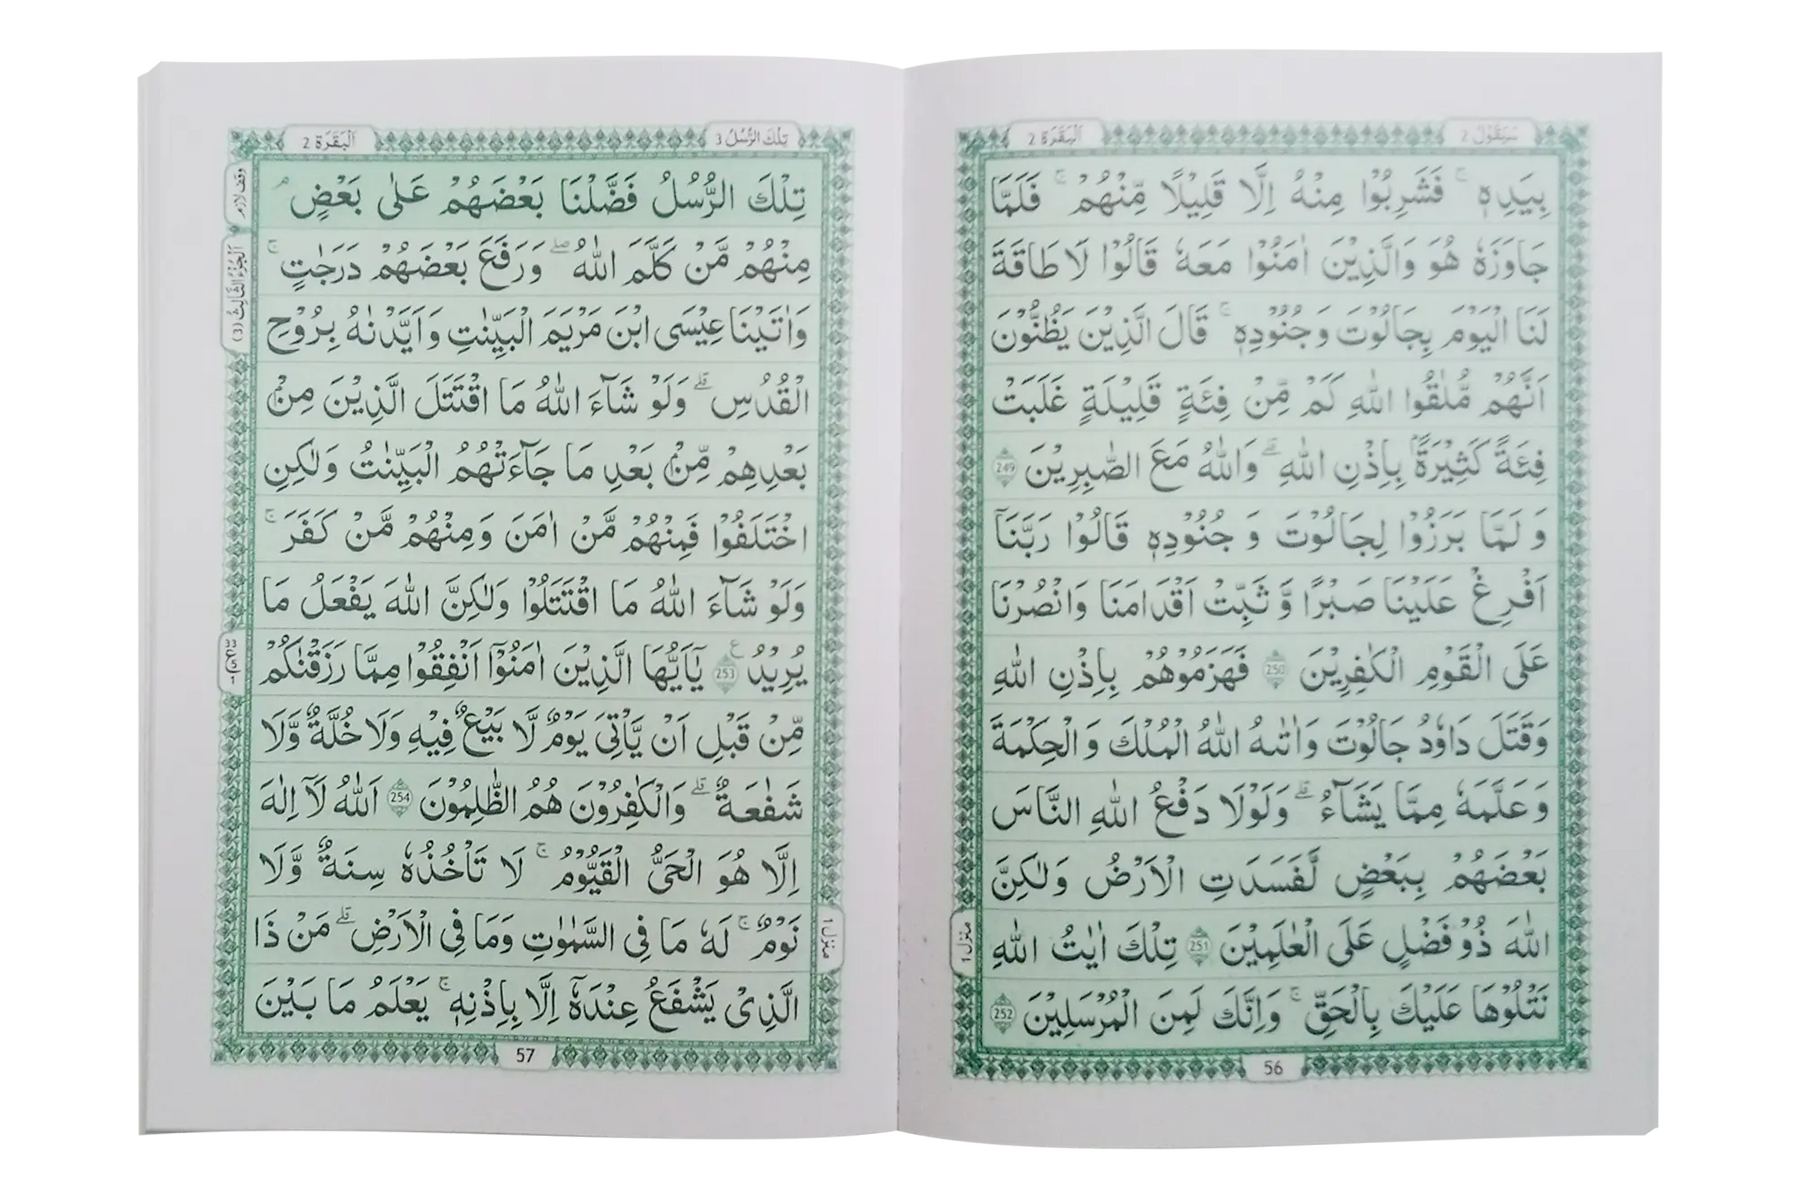 سَيَقُوۡلُ 2
اَلۡبَقَرَة 2
بِيَدِهٖ ۚ فَشَرِبُوۡا مِنۡهُ اِلَّا قَلِيۡلًا مِّنۡهُمۡ ۚ فَلَمَّا
جَاوَزَهٗ هُوَ وَالَّذِيۡنَ اٰمَنُوۡا مَعَهٗ قَالُوۡا لَا طَاقَةَ
لَنَا الۡيَوۡمَ بِجَالُوۡتَ وَ جُنُوۡدِهٖ ۚ قَالَ الَّذِيۡنَ يَظُنُّوۡنَ
اَنَّهُمۡ مُّلٰقُوا اللّٰهِ كَمۡ مِّنۡ فِئَةٍ قَلِيۡلَةٍ غَلَبَتۡ
فِئَةً كَثِيۡرَةًۢ بِاِذۡنِ اللّٰهِ ؕ وَاللّٰهُ مَعَ الصّٰبِرِيۡنَ 249
وَ لَمَّا بَرَزُوۡا لِجَالُوۡتَ وَ جُنُوۡدِهٖ قَالُوۡا رَبَّنَاۤ
اَفۡرِغۡ عَلَيۡنَا صَبۡرًا وَّ ثَبِّتۡ اَقۡدَامَنَا وَانۡصُرۡنَا
عَلَى الۡقَوۡمِ الۡكٰفِرِيۡنَ 250 فَهَزَمُوۡهُمۡ بِاِذۡنِ اللّٰهِ
وَقَتَلَ دَاوٗدُ جَالُوۡتَ وَاٰتٰٮهُ اللّٰهُ الۡمُلۡكَ وَ الۡحِكۡمَةَ
وَ عَلَّمَهٗ مِمَّا يَشَآءُ ؕ وَلَوۡلَا دَفۡعُ اللّٰهِ النَّاسَ
بَعۡضَهُمۡ بِبَعۡضٍ لَّفَسَدَتِ الۡاَرۡضُ وَلٰكِنَّ
اللّٰهَ ذُوۡ فَضۡلٍ عَلَى الۡعٰلَمِيۡنَ 251 تِلۡكَ اٰيٰتُ اللّٰهِ
نَتۡلُوۡهَا عَلَيۡكَ بِالۡحَقِّ ؕ وَاِنَّكَ لَمِنَ الۡمُرۡسَلِيۡنَ 252
منزل 1
56
تِلۡكَ الرُّسُلُ 3
اَلۡبَقَرَة 2
وقف لازم
اَلۡجُزۡءُ الثَّالِثُ (3)
تِلۡكَ الرُّسُلُ فَضَّلۡنَا بَعۡضَهُمۡ عَلٰى بَعۡضٍ ۘ
مِنۡهُمۡ مَّنۡ كَلَّمَ اللّٰهُ ۖ وَرَفَعَ بَعۡضَهُمۡ دَرَجٰتٍ ؕ
وَاٰتَيۡنَا عِيۡسَى ابۡنَ مَرۡيَمَ الۡبَيِّنٰتِ وَاَيَّدۡنٰهُ بِرُوۡحِ
الۡقُدُسِ ؕ وَلَوۡ شَآءَ اللّٰهُ مَا اقۡتَتَلَ الَّذِيۡنَ مِنۡۢ
بَعۡدِهِمۡ مِّنۡۢ بَعۡدِ مَا جَآءَتۡهُمُ الۡبَيِّنٰتُ وَلٰكِنِ
اخۡتَلَفُوۡا فَمِنۡهُمۡ مَّنۡ اٰمَنَ وَ مِنۡهُمۡ مَّنۡ كَفَرَ ؕ
وَلَوۡ شَآءَ اللّٰهُ مَا اقۡتَتَلُوۡا وَلٰكِنَّ اللّٰهَ يَفۡعَلُ مَا
يُرِيۡدُ 253 يٰۤاَيُّهَا الَّذِيۡنَ اٰمَنُوۡۤا اَنۡفِقُوۡا مِمَّا رَزَقۡنٰكُمۡ
مِّنۡ قَبۡلِ اَنۡ يَّاۡتِىَ يَوۡمٌ لَّا بَيۡعٌ فِيۡهِ وَلَا خُلَّةٌ وَّلَا
شَفَاعَةٌ ؕ وَالۡكٰفِرُوۡنَ هُمُ الظّٰلِمُوۡنَ 254 اَللّٰهُ لَاۤ اِلٰهَ
اِلَّا هُوَ الۡحَىُّ الۡقَيُّوۡمُ ۚ لَا تَاۡخُذُهٗ سِنَةٌ وَّلَا
نَوۡمٌ ؕ لَهٗ مَا فِى السَّمٰوٰتِ وَمَا فِى الۡاَرۡضِ ؕ مَنۡ ذَا
الَّذِىۡ يَشۡفَعُ عِنۡدَهٗۤ اِلَّا بِاِذۡنِهٖ ؕ يَعۡلَمُ مَا بَيۡنَ
منزل 1
57